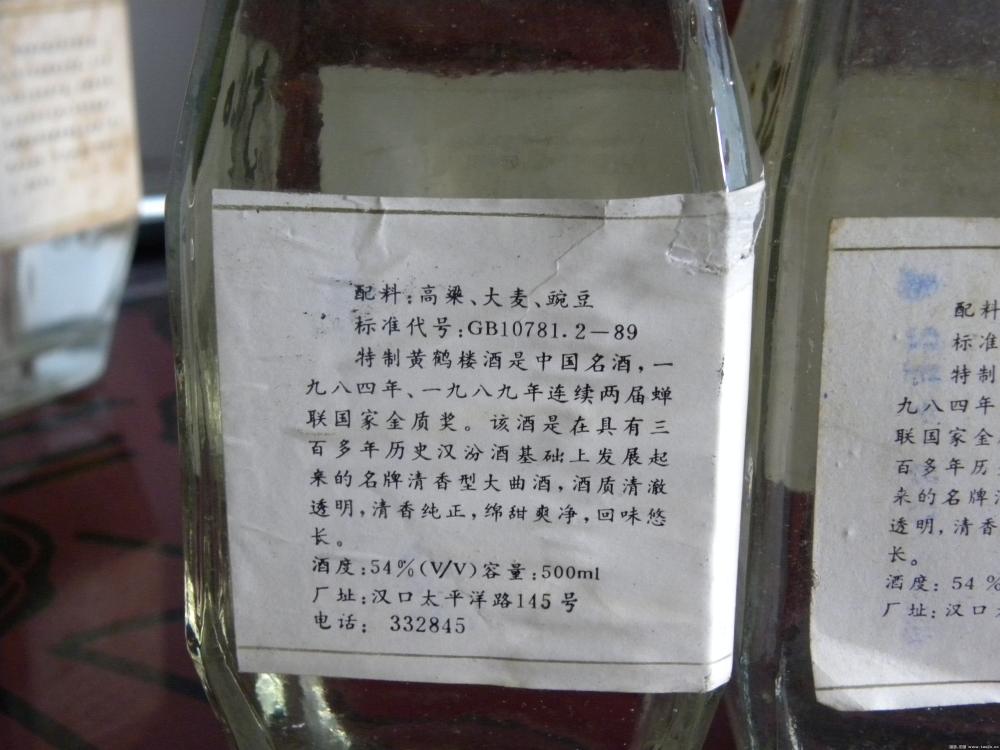 配料:高粱、大麦、豌豆
标准代号:GB10781.2—89
特制黄鹤楼酒是中国名酒,一
九八四年、一九八九年连续两届蝉
联国家金质奖。该酒是在具有三
百多年历史汉汾酒基础上发展起
来的名牌清香型大曲酒,酒质清澈
透明,清香纯正,绵甜爽净,回味悠
长。
酒度:54%(V/V)容量:500ml
厂址:汉口太平洋路145号
电话: 332845
配料
标准
特制
九八四年
联国家金
百多年历
来的名牌
透明,清香
长。
酒度: 54 %
厂址:汉口